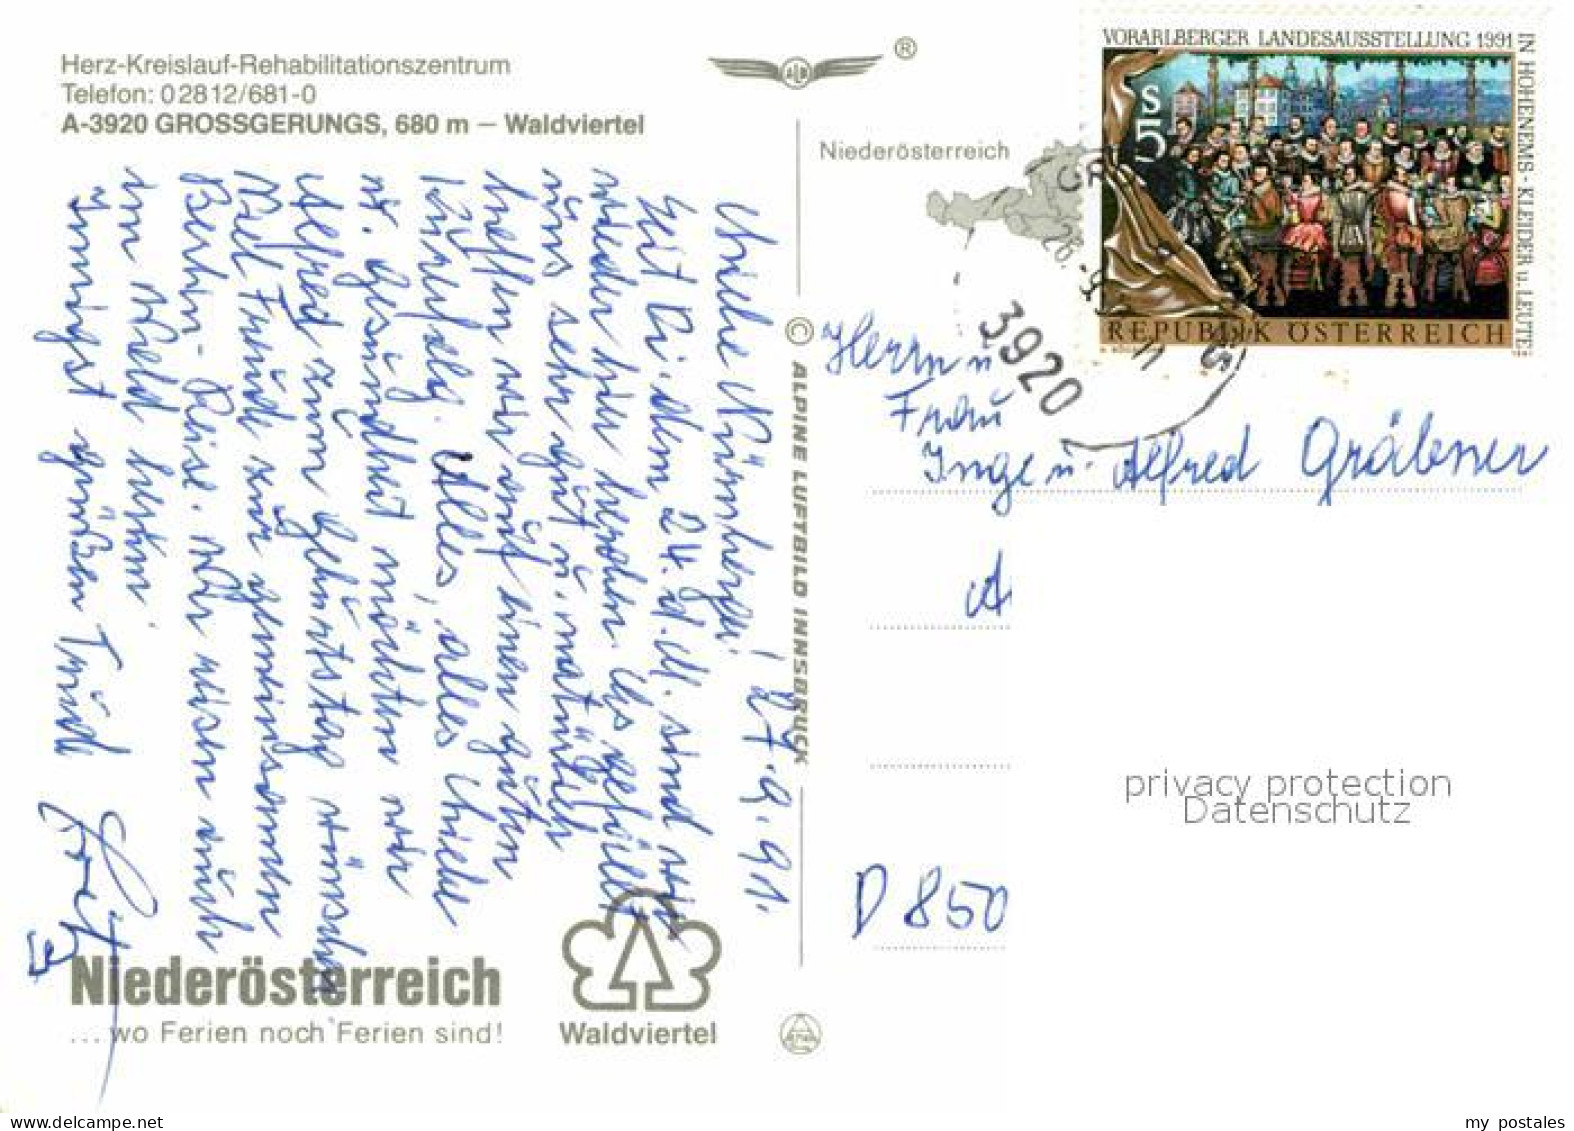 Herz-Kreislauf-Rehabilitationszentrum
Telefon: 02812/681-0
A-3920 GROSSGERUNGS, 680 m — Waldviertel
ALB
®
Niederösterreich
VORARLBERGER LANDESAUSSTELLUNG 1991
IN HOHENEMS - KLEIDER u. LEUTE
S5
REPUBLIK ÖSTERREICH
3920
27.9.91.
Liebe Nürnberger!
Seit Di. dem 24. d. M. sind wir
wieder hier heroben. Es gefällt
uns sehr gut u. natürlich
hoffen wir auf einen guten
Kurerfolg. Alles, alles Liebe
u. Gesundheit möchten wir
Alfred zum Geburtstag wünschen
Viel Freude zur gemeinsamen
Berlin-Reise. Wir
im Wald herum.
Innigst grüßen Trudl
© ALPINE LUFTBILD INNSBRUCK
Herrn u
Frau
Inge u. Alfred Gräbner
D 850
privacy protection
Datenschutz
Niederösterreich
... wo Ferien noch Ferien sind!
Waldviertel
my postales